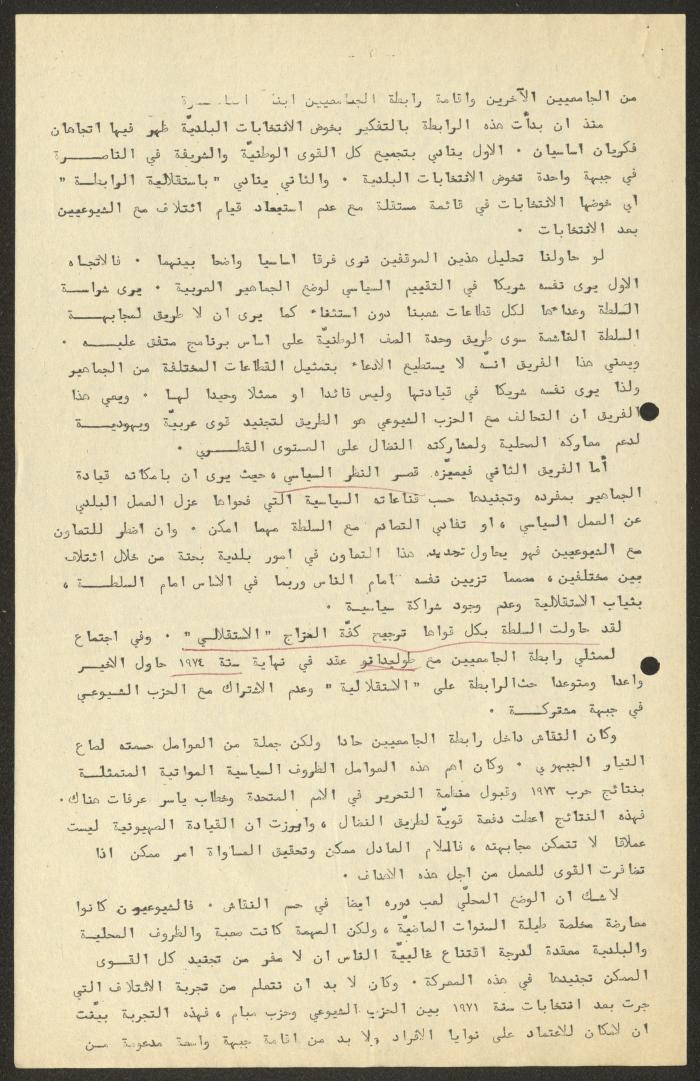 من الجامعيين الآخرين واقامة رابطة الجامعيين ابناء
منذ ان بدأت هذه الرابطة بالتفكير بخوض الانتخابات البلديّة ظهر فيها اتجاهان
فكريان اساسيان ٠ الاول ينادي بتجميع كل القوى الوطنيّة والشريفة في الناصـــرة
في جبهة واحدة تخوض الانتخابات البلدية ٠ والثاني ينادي " باستقلالية الرابطـــة "
اي خوضها الانتخابات في قائمة مستقلة مع عدم استبعاد قيام ائتلاف مع الشيوعيين
بعد الانتخابات ٠
لو حاولنا تحليل هذين الموقفين نرى فرقا اساسيا واضحا بينهما ٠ فالاتجـاه
الاول يرى نفسه شريكا في التقييم السياسي لوضع الجماهير العربية ٠ يرى شراســة
السلطة وعداءها لكل قطاعات شعبنا دون استثناء كما يرى ان لا طريق لمجابهــــة
السلطة الغاشمة سوى طريق وحدة الصف الوطنيّة على اساس برنامج متفق عليـــه ٠
ويعني هذا الفريق انـّه لا يستطيع الادعاء بتمثيل القطاعات المختلفة من الجماهير
ولذا يرى نفسه شريكا في قيادتها وليس قائدا او ممثلا وحيدا لهــا ٠ ويعي هذا
الفريق ان التحالف مع الحزب الشيوعي هو الطريق لتجنيد قوى عربيّة ويهوديـــة
لدعم معاركه المحلية ولمشاركته النضال على المستوى القطــري ٠
أما الفريق الثاني فيميّزه قصر النظر السياسي ، حيث يرى ان بامكانه قيادة
الجماهير بمفرده وتجنيدها حسب قناعاته السياسية التي فحواها عزل العمل البلدي
عن العمل السياسي ، او تفادي التصادم مع السلطة مهما امكن ٠ وان اضطر للتعاون
مع الشيوعيين فهو يحاول تحديد هذا التعاون في امور بلدية بحتة من خلال ائتلاف
بين مختلفين ، مصمما تزيين نفسه امام الناس وربما في الاساس امام السلطـــة ،
بثياب الاستقلالية وعدم وجود شراكة سياسيـة ٠
لقد حاولت السلطة بكل قواها ترجيح كفّة المزاج " الاستقلالـي " ٠ وفي اجتماع
لممثلي رابطة الجامعيين مع طوليدانو عقد في نهاية سنة ١٩٧٤ حاول الاخيــر
واعدا ومتوعدا حث الرابطة على " الاستقلالية " وعدم الاشتراك مع الحزب الشيوعـي
في جبهة مشتركـــة ٠
وكان النقاش داخل رابطة الجامعيين حادا ولكن جملة من العوامل حسمته لصالح
التيار الجبهوي ٠ وكان اهم هذه العوامل الظروف السياسية المواتية المتمثلـــة
بنتائج حرب ١٩٧٣ وقبول منظمة التحرير في الامم المتحدة وخطاب ياسر عرفات هناك ٠
فهذه النتائج اعطت دفعة قويّة لطريق النضال ، وابرزت ان القيادة الصهيونية ليست
عملاقا لا تتمكن مجابهته ، فالسلام العادل ممكن وتحقيق المساواة امر ممكن اذا
تضافرت القوى للعمل من اجل هذه الاهداف ٠
لاشك ان الوضع المحلّي لعب دوره ايضا في حسم النقاش ٠ فالشيوعيون كانوا
معارضة مخلصة طيلة السنوات الماضيّة ، ولكن المهمة كانت صعبة والظروف المحليـة
والبلدية معقدة لدرجة اقتناع غالبيّة الناس ان لا مفر من تجنيد كل القــوى
الممكن تجنيدها في هذه المعركة ٠ وكان لا بد ان نتعلم من تجربة الائتلاف التي
جرت بعد انتخابات سنة ١٩٧١ بين الحزب الشيوعي وحزب مبام ، فهذه التجربة بيّنت
ان لامكان للاعتماد على نوايا الافراد ولا بد من اقامة جبهة واسعة مدعومة مــن